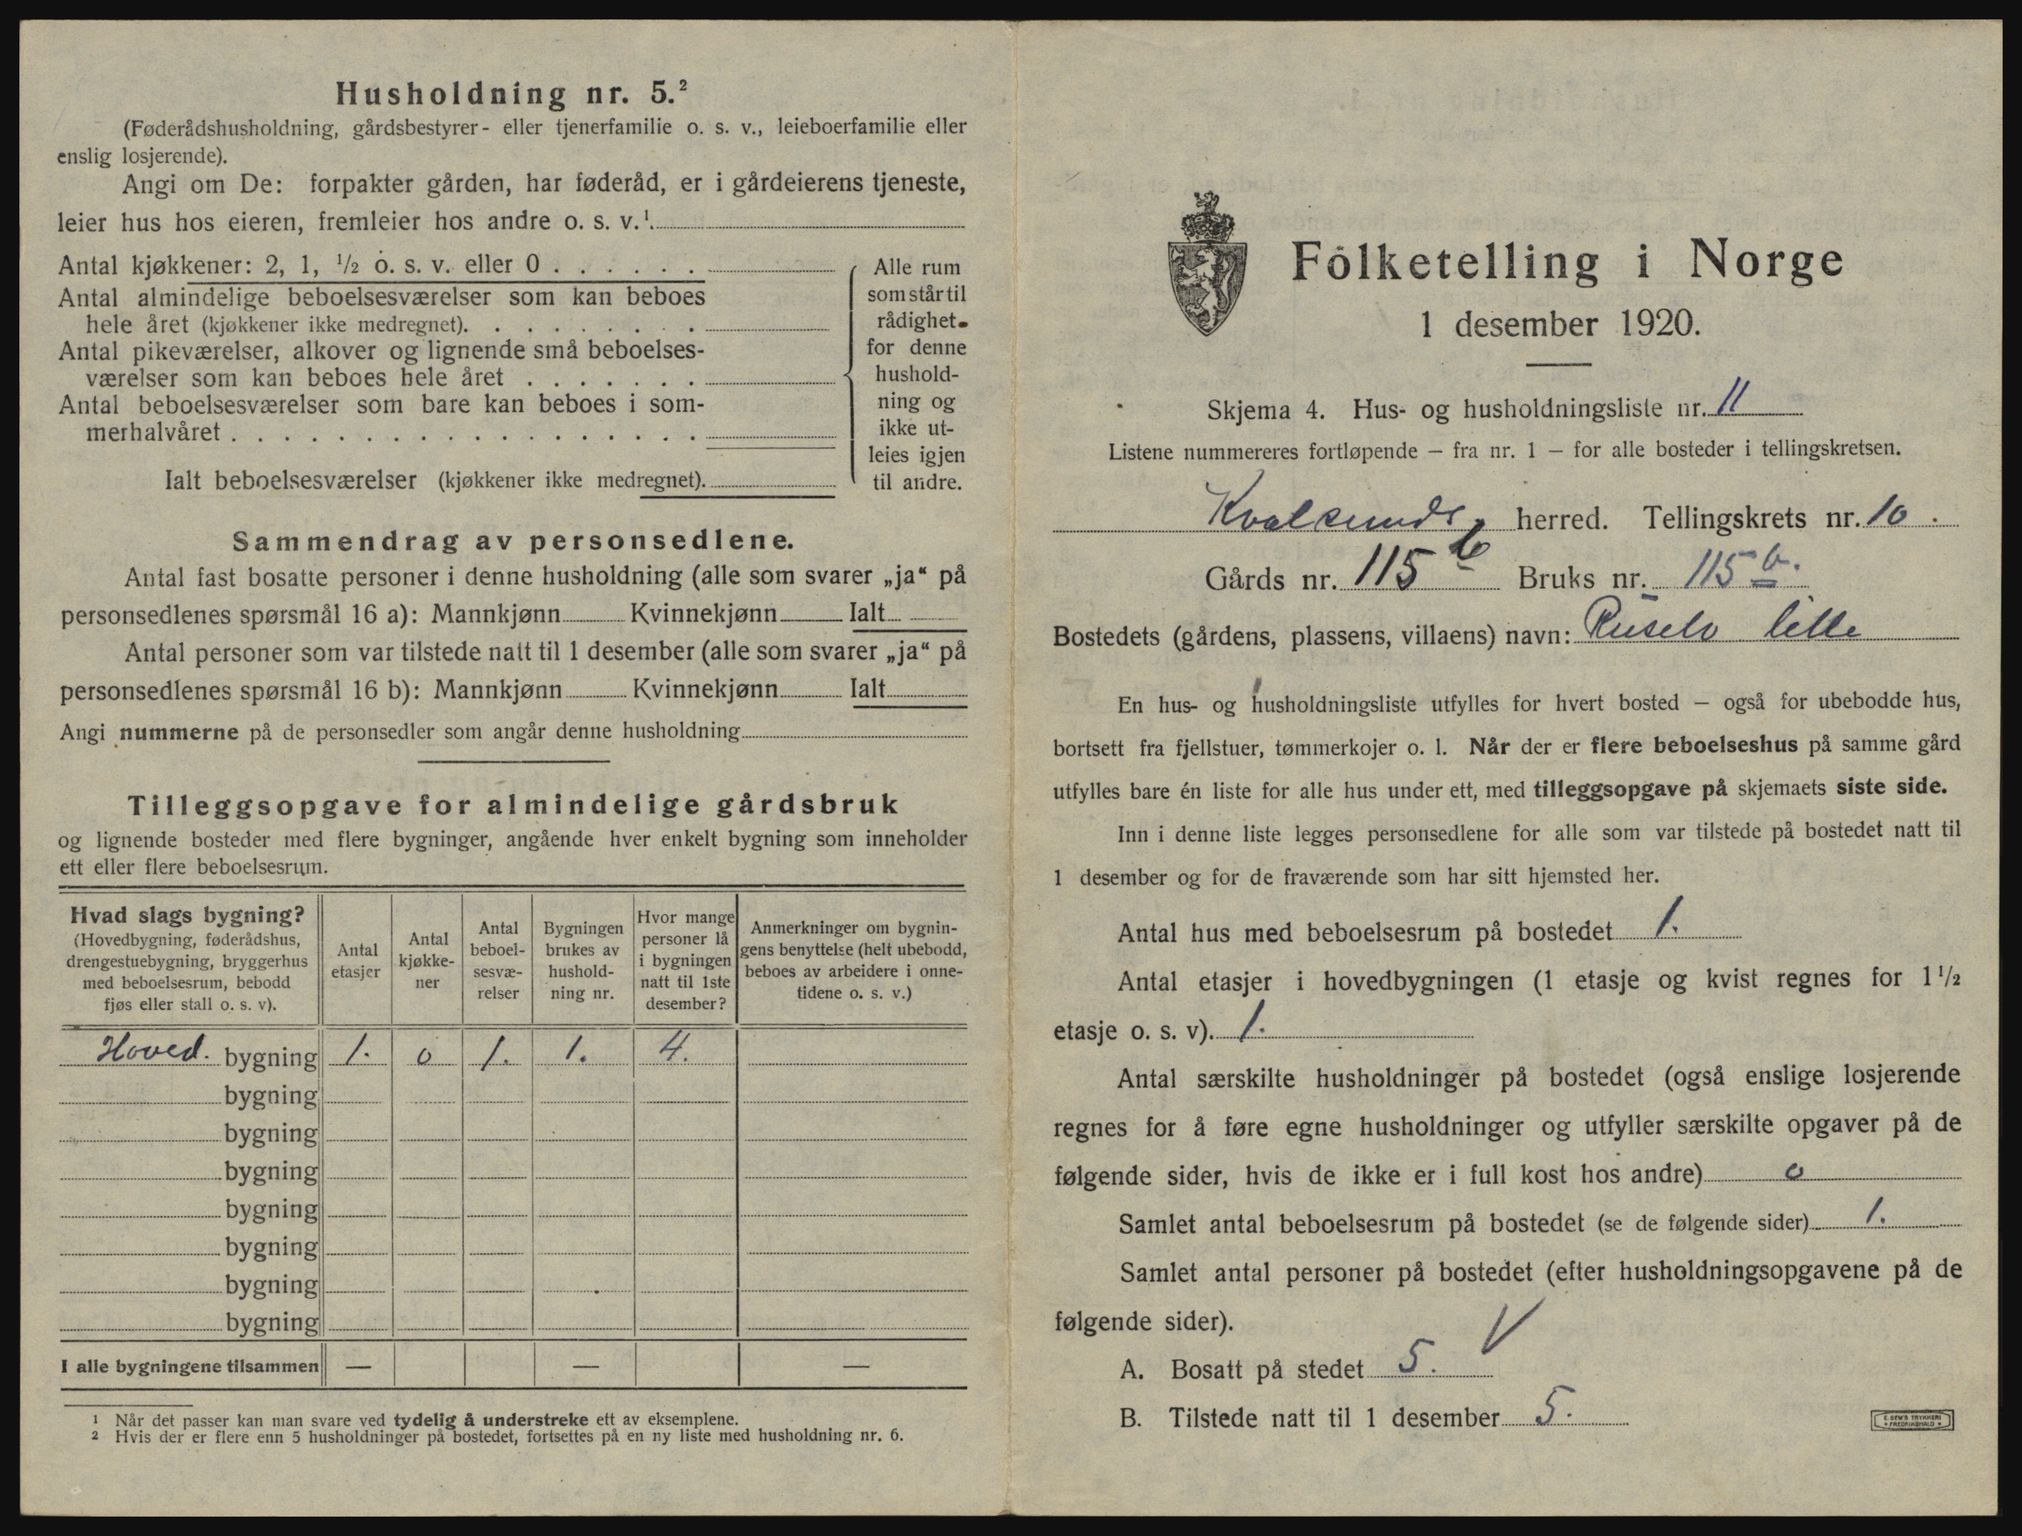 Husholdning nr. 5.²
(Føderådshusholdning, gårdsbestyrer- eller tjenerfamilie o. s. v., leieboerfamilie eller
enslig losjerende).
Angi om De: forpakter gården, har føderåd, er i gårdeierens tjeneste,
leier hus hos eieren, fremleier hos andre o. s. v.¹
Antal kjøkkener: 2, 1, ½ o. s. v. eller 0 . . . . . .
Antal almindelige beboelsesværelser som kan beboes
hele året (kjøkkener ikke medregnet). . . . . . . . .
Antal pikeværelser, alkover og lignende små beboelses-
værelser som kan beboes hele året . . . . . . .
Antal beboelsesværelser som bare kan beboes i som-
merhalvåret . . . . . . . . . . . . . . . . . .
Ialt beboelsesværelser (kjøkkener ikke medregnet).
Alle rum
som står til
rådighet
for denne
hushold-
ning og
ikke ut-
leies igjen
til andre.
Sammendrag av personsedlene.
Antal fast bosatte personer i denne husholdning (alle som svarer „ja“ på
personsedlenes spørsmål 16 a): Mannkjønn Kvinnekjønn Ialt
Antal personer som var tilstede natt til 1 desember (alle som svarer „ja“ på
personsedlenes spørsmål 16 b): Mannkjønn Kvinnekjønn Ialt
Angi nummerne på de personsedler som angår denne husholdning
Tilleggsopgave for almindelige gårdsbruk
og lignende bosteder med flere bygninger, angående hver enkelt bygning som inneholder
ett eller flere beboelsesrum.
Hvad slags bygning?
(Hovedbygning, føderådshus,
drengestuebygning, bryggerhus
med beboelsesrum, bebodd
fjøs eller stall o. s. v).
Antal
etasjer
Antal
kjøkke-
ner
Antal
beboel-
sesvæ-
relser
Bygningen
brukes av
hushold-
ning nr.
Hvor mange
personer lå
i bygningen
natt til 1ste
desember?
Anmerkninger om bygnin-
gens benyttelse (helt ubebodd,
beboes av arbeidere i onne-
tidene o. s. v.)
Hoved. bygning 1. 0 1. 1. 4.
bygning
bygning
bygning
bygning
bygning
bygning
bygning
I alle bygningene tilsammen — — —
¹ Når det passer kan man svare ved tydelig å understreke ett av eksemplene.
² Hvis der er flere enn 5 husholdninger på bostedet, fortsettes på en ny liste med husholdning nr. 6.
Folketelling i Norge
1 desember 1920.
Skjema 4. Hus- og husholdningsliste nr. 11
Listene nummereres fortløpende — fra nr. 1 — for alle bosteder i tellingskretsen.
Kvalsunds herred. Tellingskrets nr. 10.
Gårds nr. 115 b Bruks nr. 115 b.
Bostedets (gårdens, plassens, villaens) navn: Ruselv lille
En hus- og husholdningsliste utfylles for hvert bosted — også for ubebodde hus,
bortsett fra fjellstuer, tømmerkojer o. l. Når der er flere beboelseshus på samme gård
utfylles bare én liste for alle hus under ett, med tilleggsopgave på skjemaets siste side.
Inn i denne liste legges personsedlene for alle som var tilstede på bostedet natt til
1 desember og for de fraværende som har sitt hjemsted her.
Antal hus med beboelsesrum på bostedet 1.
Antal etasjer i hovedbygningen (1 etasje og kvist regnes for 1½
etasje o. s. v). 1.
Antal særskilte husholdninger på bostedet (også enslige losjerende
regnes for å føre egne husholdninger og utfyller særskilte opgaver på de
følgende sider, hvis de ikke er i full kost hos andre) 0
Samlet antal beboelsesrum på bostedet (se de følgende sider) 1.
Samlet antal personer på bostedet (efter husholdningsopgavene på de
følgende sider).
A. Bosatt på stedet 5.
B. Tilstede natt til 1 desember 5.
E. SEM'S TRYKKERI
FREDRIKSHALD